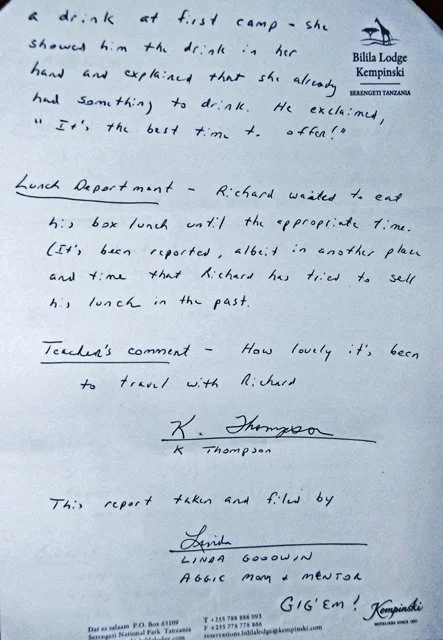 a drink at first camp - she
showed him the drink in her
hand and explained that she already
had something to drink. He exclaimed,
"It's the best time to offer!"
Bilila Lodge
Kempinski
SERENGETI TANZANIA
Lunch Department - Richard waited to eat
his box lunch until the appropriate time.
(It's been reported, albeit in another place
and time that Richard has tried to sell
his lunch in the past.
Teacher's comment - How lovely it's been
to travel with Richard
K. Thompson
K Thompson
This report taken and filed by
Linda
LINDA GOODWIN
AGGIE MOM & MENTOR
GIG'EM!
Kempinski
Dar es salaam P.O. Box 63109
Serengeti National Park Tanzania
T +255 788 888 093
F +255 778 778 866
reservations.bililalodge@kempinski.com